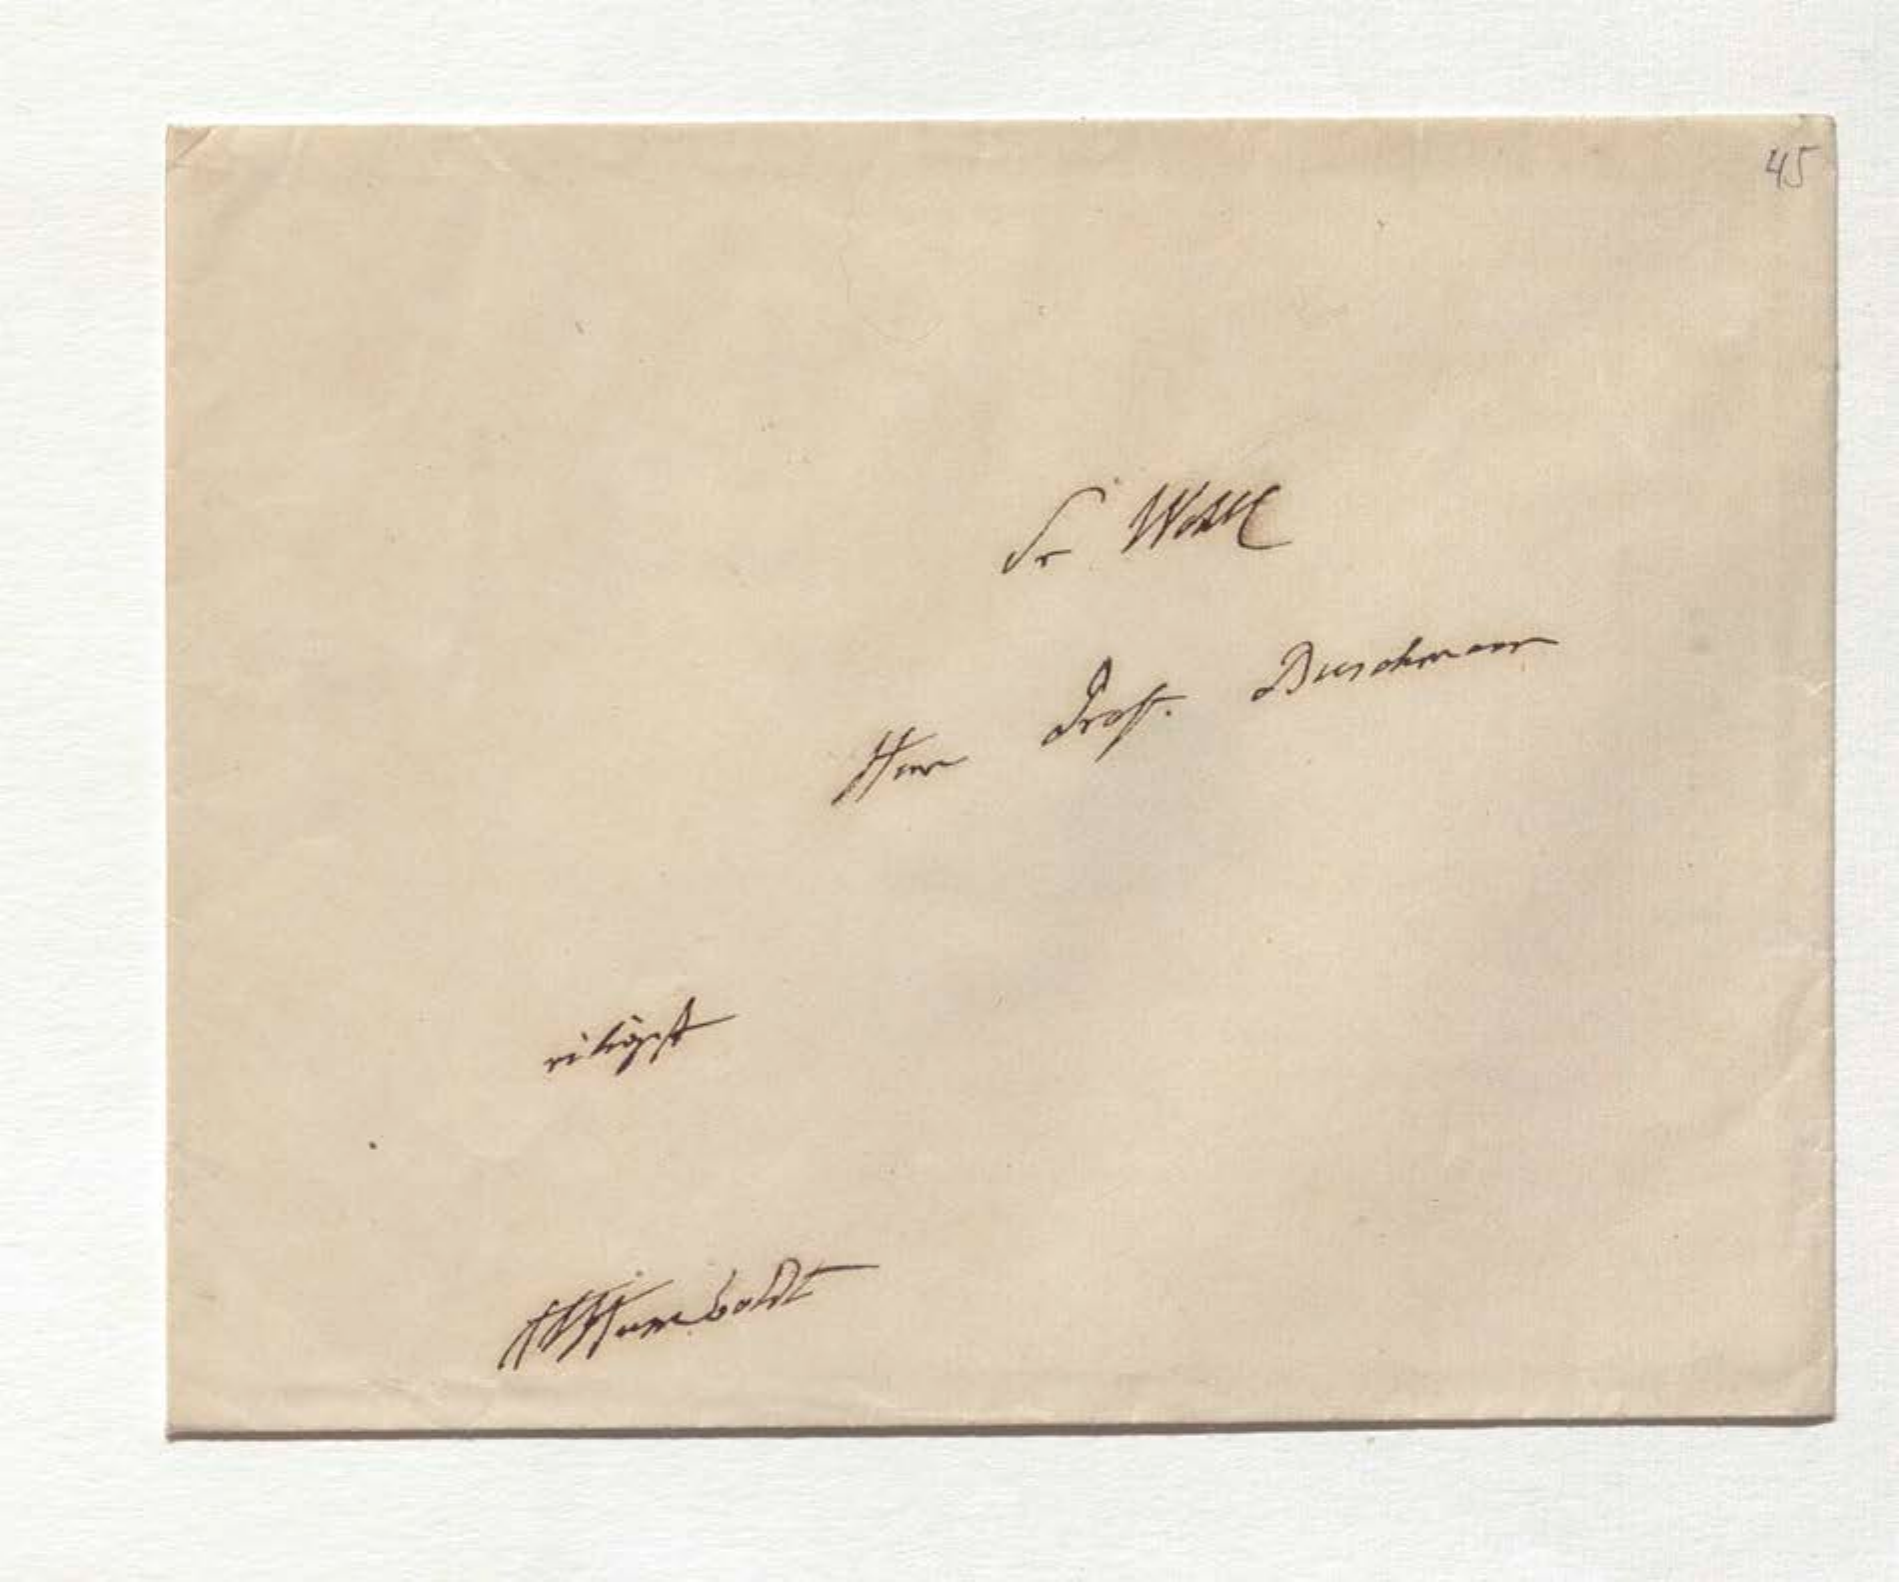 45
Sr Wohl
Herr Prof. Buschmann
eiligst
AvHumboldt